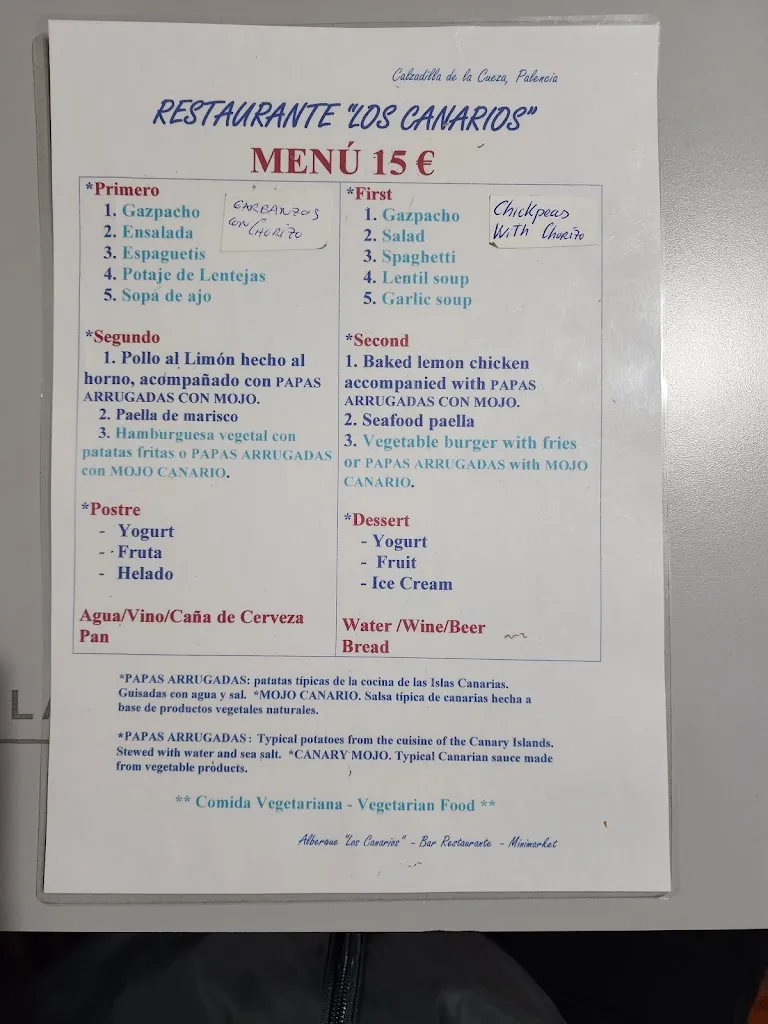 Calzadilla de la Cueza, Palencia
RESTAURANTE "LOS CANARIOS"
MENÚ 15 €
*Primero
1. Gazpacho
2. Ensalada
3. Espaguetis
4. Potaje de Lentejas
5. Sopa de ajo
GARBANZOS
CON CHORIZO
*Segundo
1. Pollo al Limón hecho al
horno, acompañado con PAPAS
ARRUGADAS CON MOJO.
2. Paella de marisco
3. Hamburguesa vegetal con
patatas fritas o PAPAS ARRUGADAS
con MOJO CANARIO.
*Postre
- Yogurt
- Fruta
- Helado
Agua/Vino/Caña de Cerveza
Pan
*First
1. Gazpacho
2. Salad
3. Spaghetti
4. Lentil soup
5. Garlic soup
Chickpeas
With Chorizo
*Second
1. Baked lemon chicken
accompanied with PAPAS
ARRUGADAS CON MOJO.
2. Seafood paella
3. Vegetable burger with fries
or PAPAS ARRUGADAS with MOJO
CANARIO.
*Dessert
- Yogurt
- Fruit
- Ice Cream
Water /Wine/Beer
Bread
*PAPAS ARRUGADAS: patatas típicas de la cocina de las Islas Canarias.
Guisadas con agua y sal. *MOJO CANARIO. Salsa típica de canarias hecha a
base de productos vegetales naturales.
*PAPAS ARRUGADAS: Typical potatoes from the cuisine of the Canary Islands.
Stewed with water and sea salt. *CANARY MOJO. Typical Canarian sauce made
from vegetable products.
** Comida Vegetariana - Vegetarian Food **
Albergue "Los Canarios" - Bar Restaurante - Minimarket